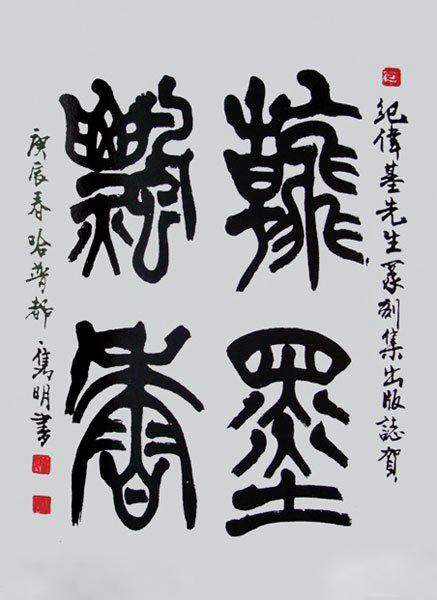 紀偉基先生篆刻集出版誌賀
翰墨
飄香
庚辰春哈普都·雋明書